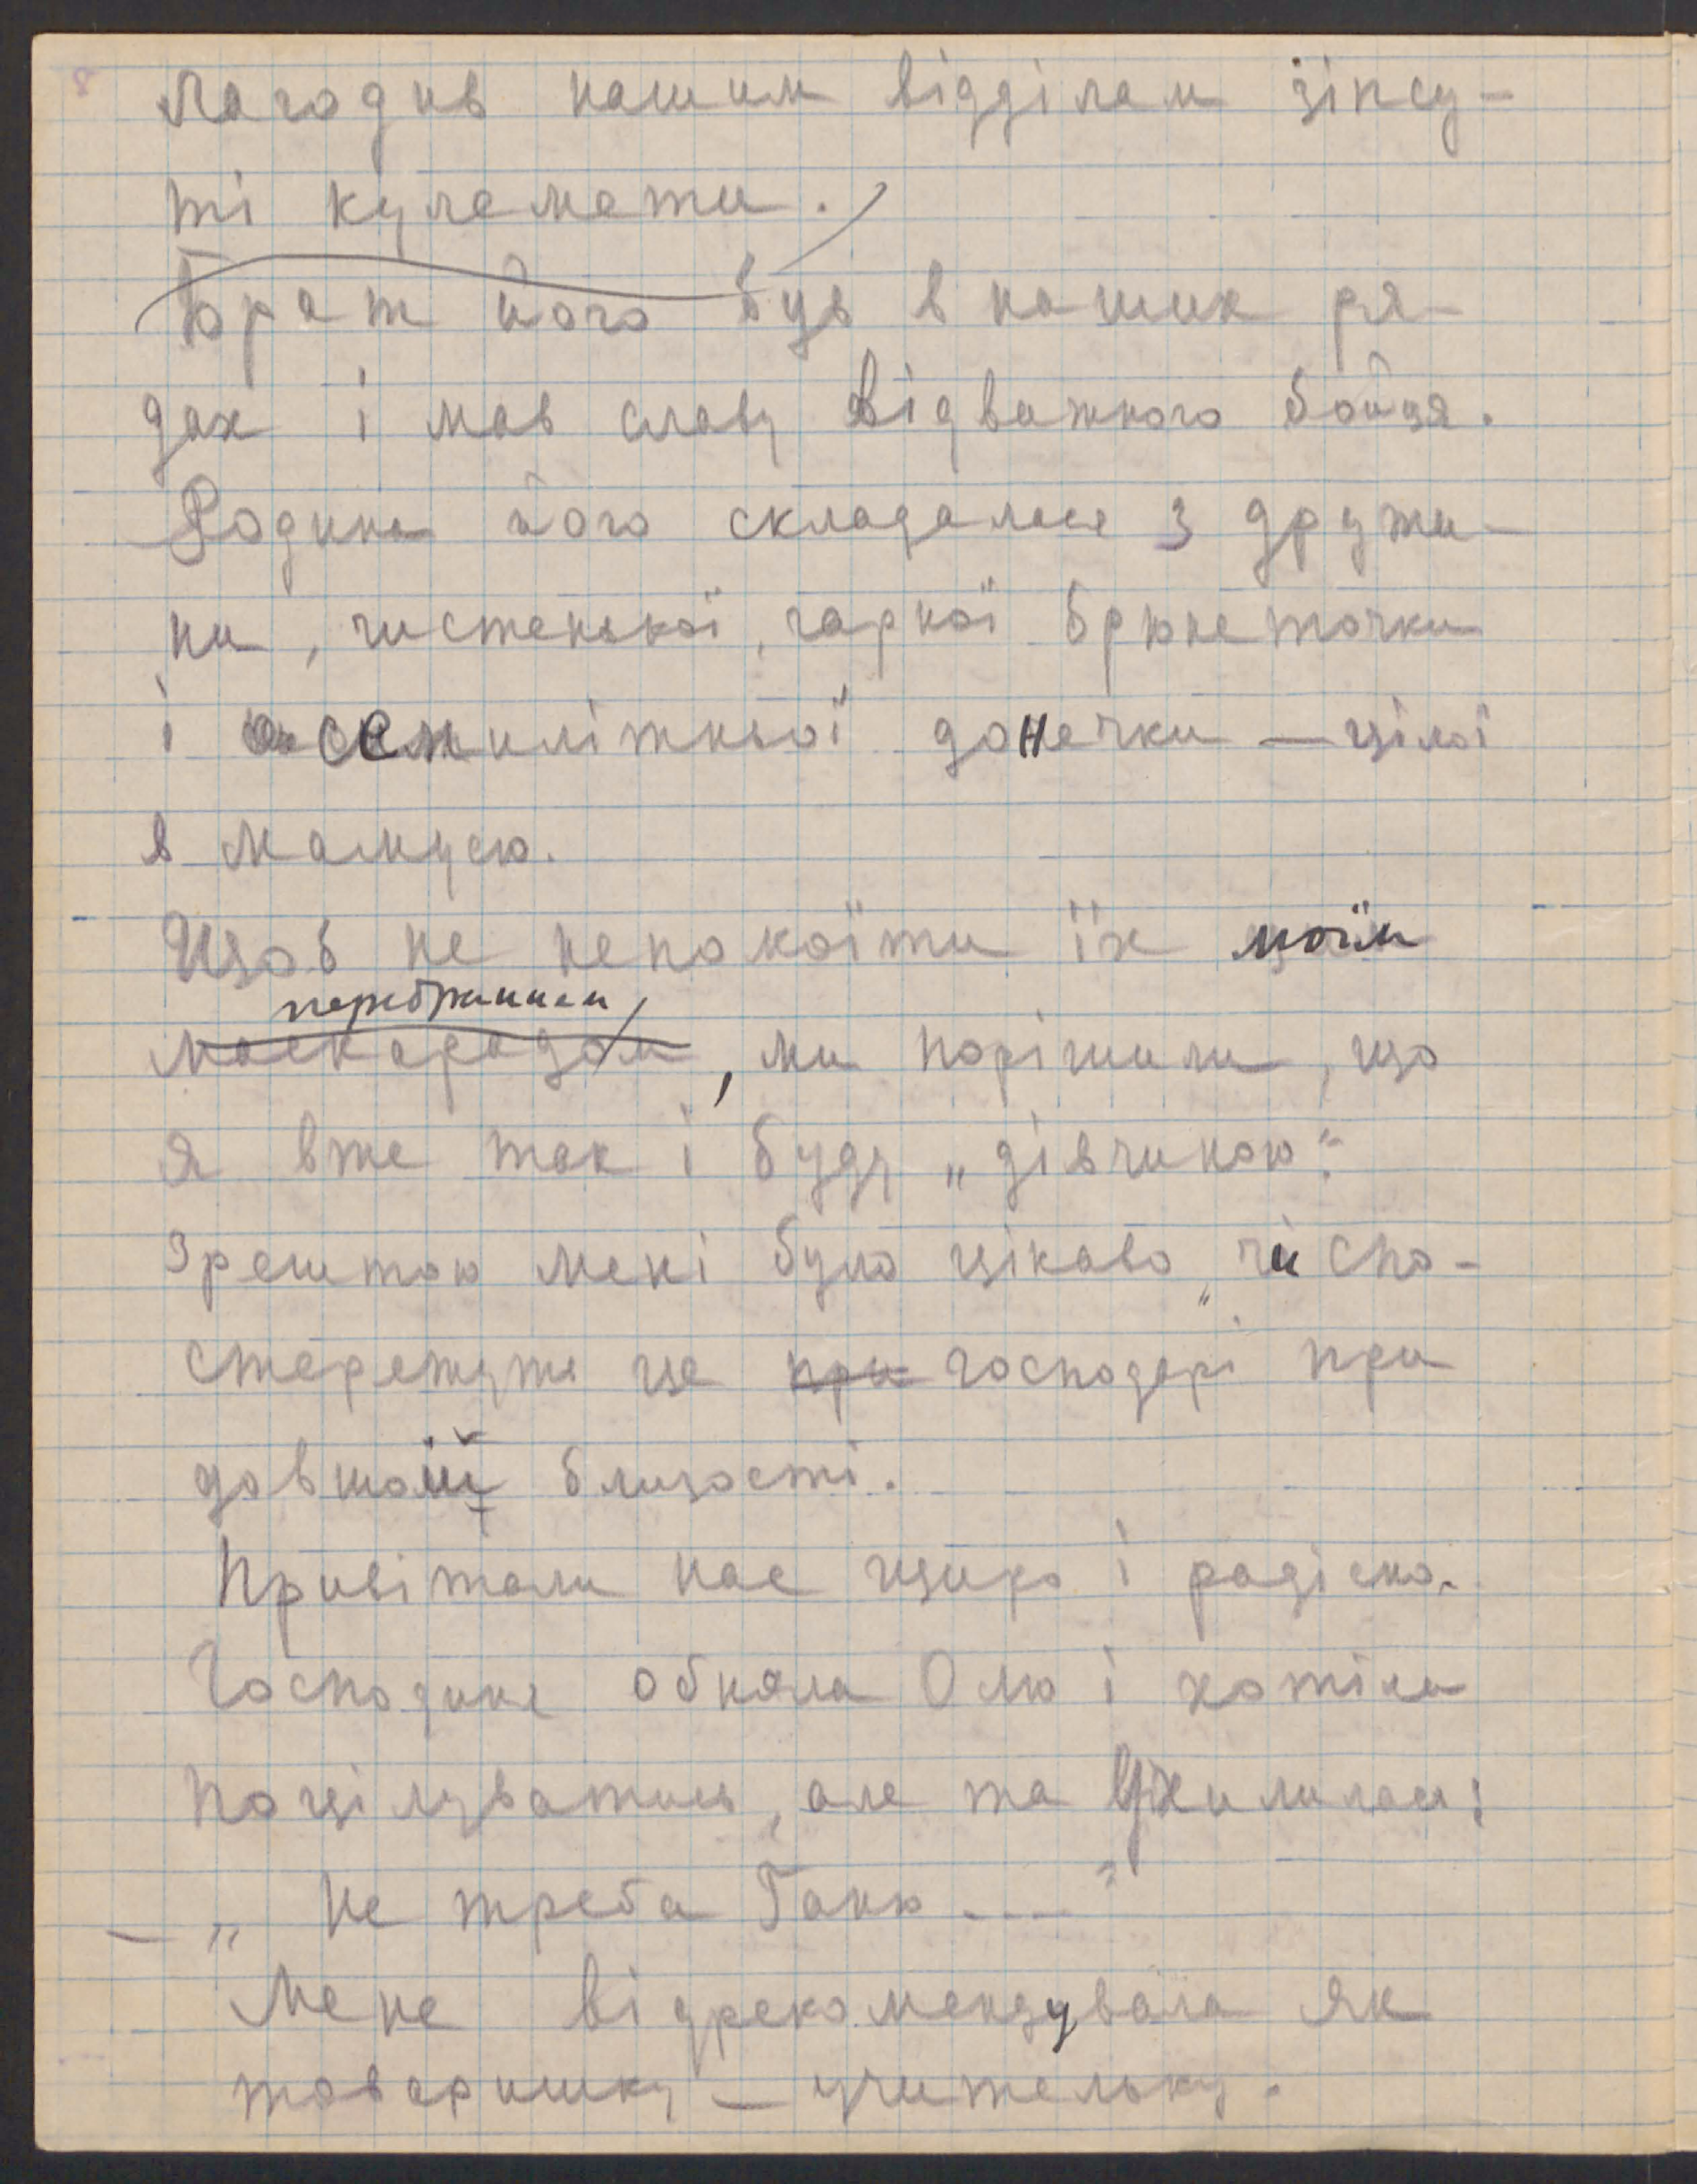 8
Лагодив нашим відділам зіпсу-
ті кулемети.
Брат його був в наших ря-
дах і мав славу відважного бойця.
Родина його складалася з дружи-
ни, чистенької, гарної брюнеточки
і семилітньої донечки — цілої
в мамусю.
Щоб не непокоїти їх моїм
перебранням
маскарадом, ми порішили, що
я вже так і буду „дівчиною“.
Зрештою мені було цікаво, чи спо-
стережуть це при господарі при
довшій близості.
Привітали нас щиро і радісно.
Господиня обняла Олю і хотіла
поцілуватись, але та ухилилась:
— „Не треба Ганю ---“
Мене відрекомендувала як
товаришку — учительку.